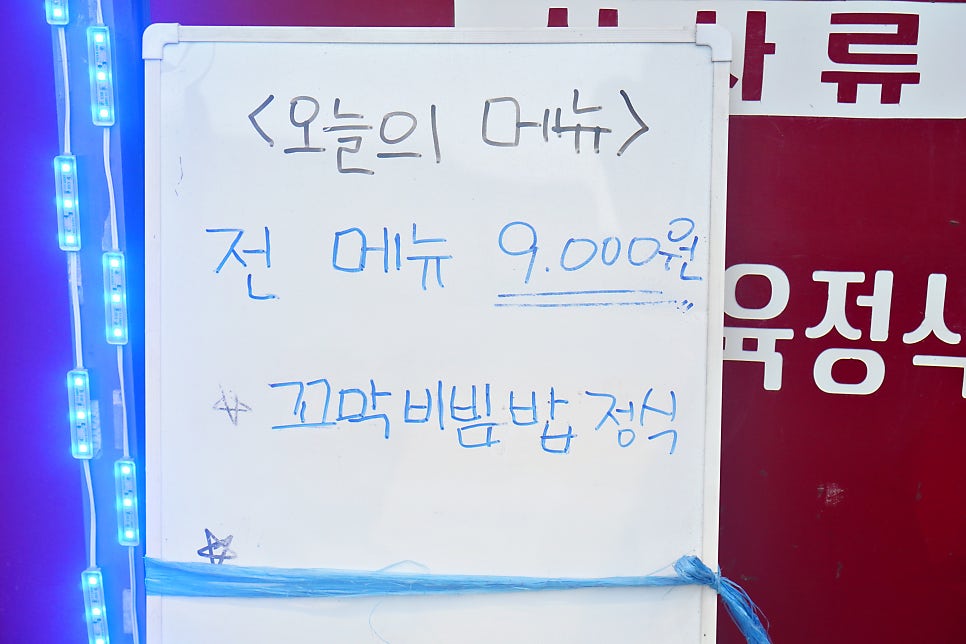 <오늘의 메뉴>
전 메뉴 9.000원
☆ 꼬막비빔밥 정식
☆
사류
육정식